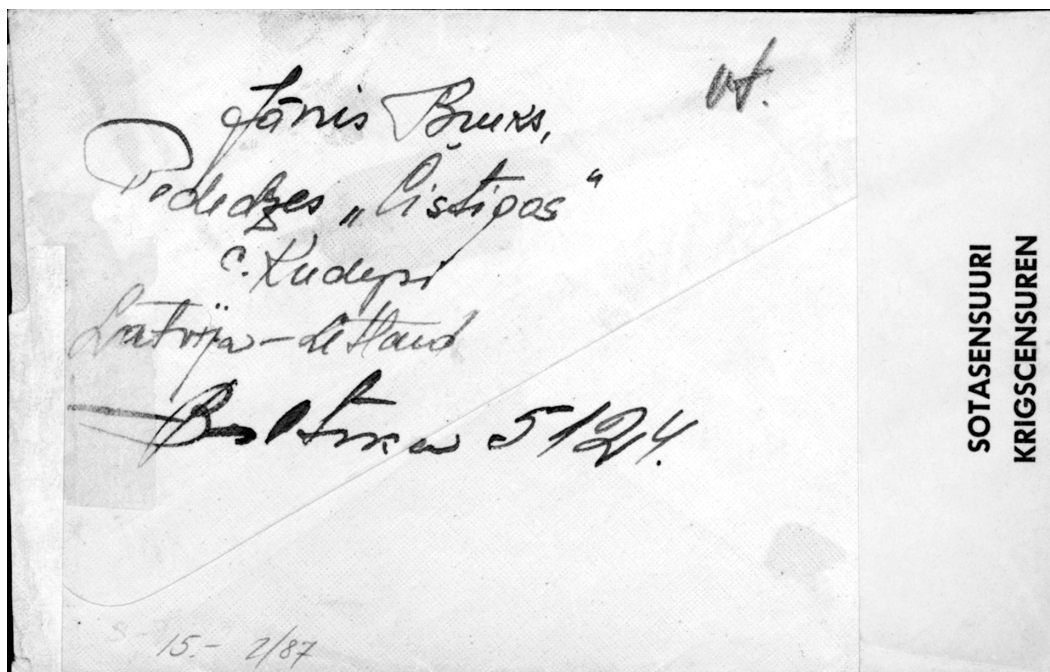 Jānis Bruks,
Pededzes „Cistigos“
c. Kudepsi
Latvija – Lettland
Baltikum 5124.
15.- 2/87
SOTASENSUURI
KRIGSCENSUREN